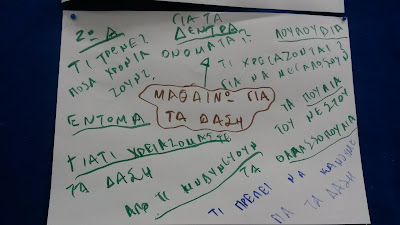 2ο Δ
ΤΙ ΤΡΩΝΕ?
ΠΟΣΑ ΧΡΟΝΙΑ
ΖΟΥΝ?
ΓΙΑ ΤΑ
ΔΕΝΤΡΑ
ΟΝΟΜΑΤΑ?
ΛΟΥΛΟΥΔΙΑ
ΤΙ ΧΡΕΙΑΖΟΝΤΑΙ?
ΓΙΑ ΝΑ ΜΕΓΑΛΩΣΟΥΝ
ΜΑΘΑΙΝΩ ΓΙΑ
ΤΑ ΔΑΣΗ
ΕΝΤΟΜΑ
ΤΑ ΠΟΥΛΙΑ
ΤΟΥ ΝΕΣΤΟΥ
ΤΑ
ΘΑΛΑΣΣΟΠΟΥΛΙΑ
ΓΙΑΤΙ ΧΡΕΙΑΖΟΜΑΣΤΕ
ΤΑ ΔΑΣΗ
ΑΠΟ ΤΙ ΚΙΝΔΥΝΕΥΟΥΝ
ΤΙ ΠΡΕΠΕΙ ΝΑ ΚΑΝΟΥΜΕ
ΓΙΑ ΤΑ ΔΑΣΗ